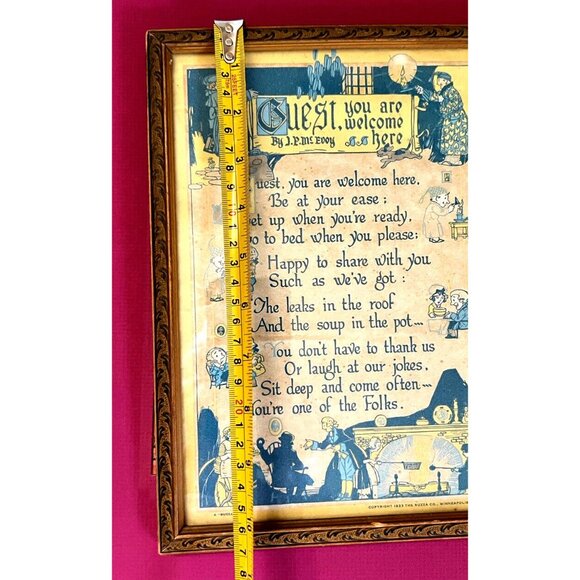 Guest, you are
welcome
By J.P. McEvoy here
uest, you are welcome here,
Be at your ease:
et up when you're ready,
o to bed when you please:
Happy to share with you
Such as we've got:
The leaks in the roof
And the soup in the pot...
You don't have to thank us
Or laugh at our jokes,
Sit deep and come often...
You're one of the Folks.
COPYRIGHT 1923 THE BUZZA CO., MINNEAPOLIS